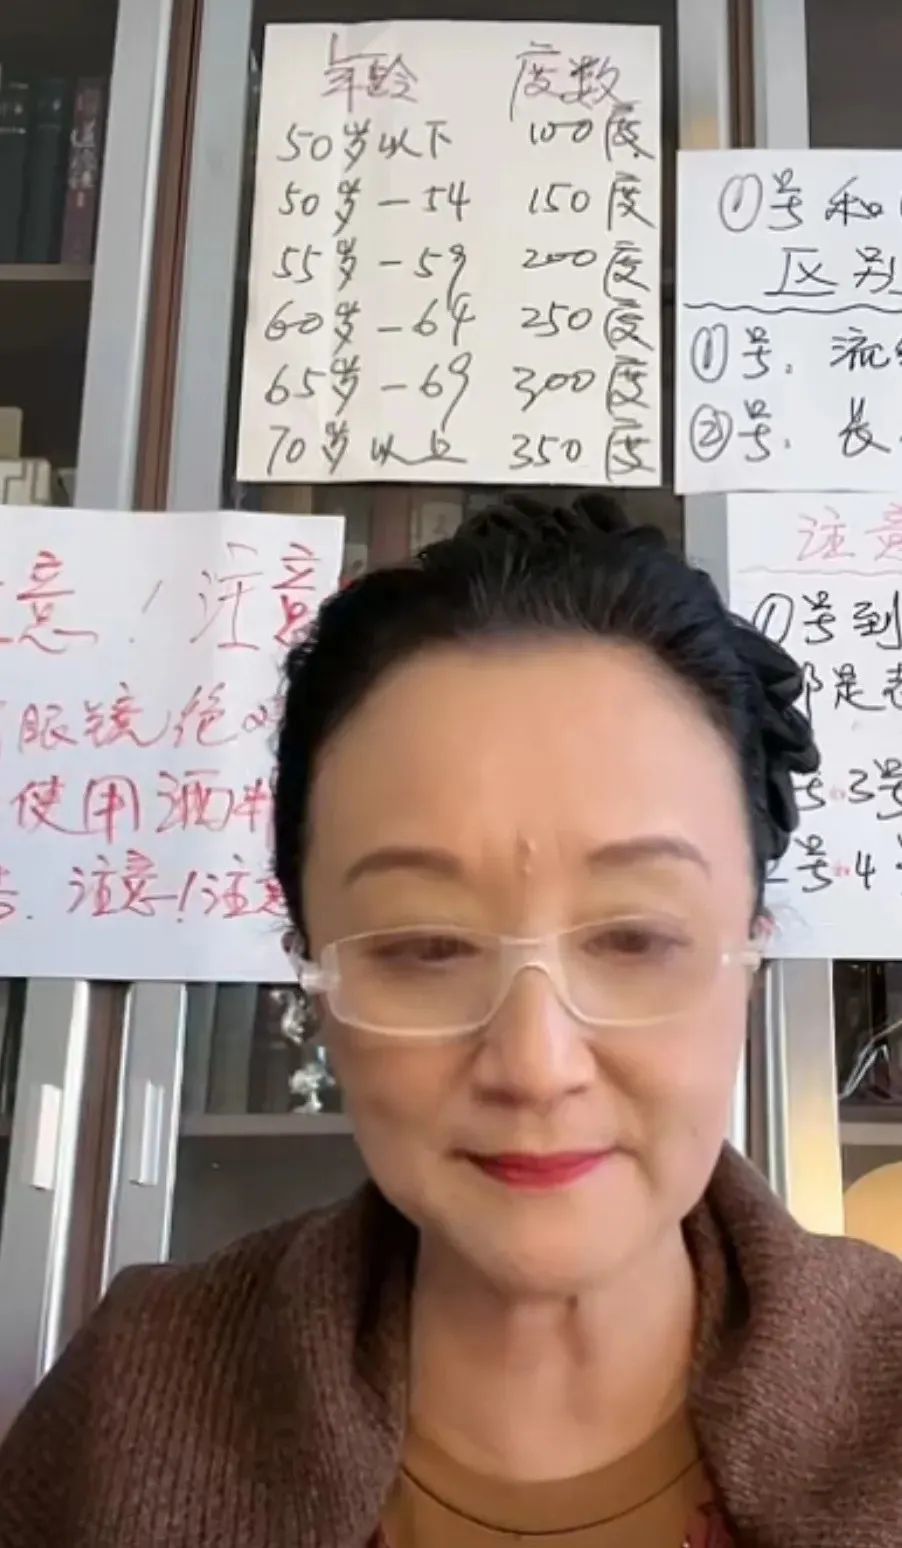 年龄 度数
50岁以下 100度
50岁-54 150度
55岁-59 200度
60岁-64 250度
65岁-69 300度
70岁以上 350度
①号和
区别
①号：流
②号：长
意！注意
眼镜绝
使用酒
注意！注意
注意
①号到
是老
3号
号 4